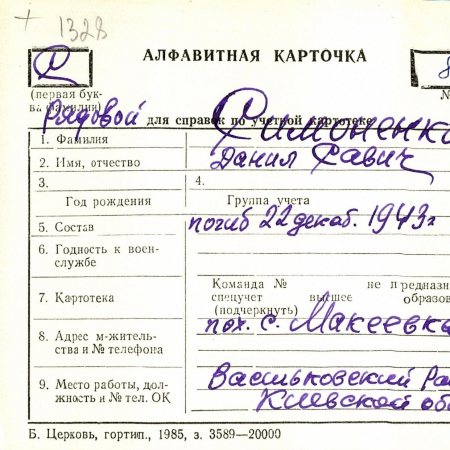 + 1328
АЛФАВИТНАЯ КАРТОЧКА
С
(первая бук-
ва фамилии)
Рядовой для справок по учетной картотеке
1. Фамилия Симоненко
2. Имя, отчество Данил Савич
3. 4.
Год рождения Группа учета
5. Состав погиб 22 декаб. 1943 г
6. Годность к воен-
службе
Команда № не предназн
7. Картотека спецучет высшее образов
(подчеркнуть)
8. Адрес м-житель-
ства и № телефона пох. с. Макеевка
9. Место работы, дол-
жность и № тел. ОК Васильковский Ра
Киевской об
Б. Церковь, гортип., 1985, з. 3589—20000